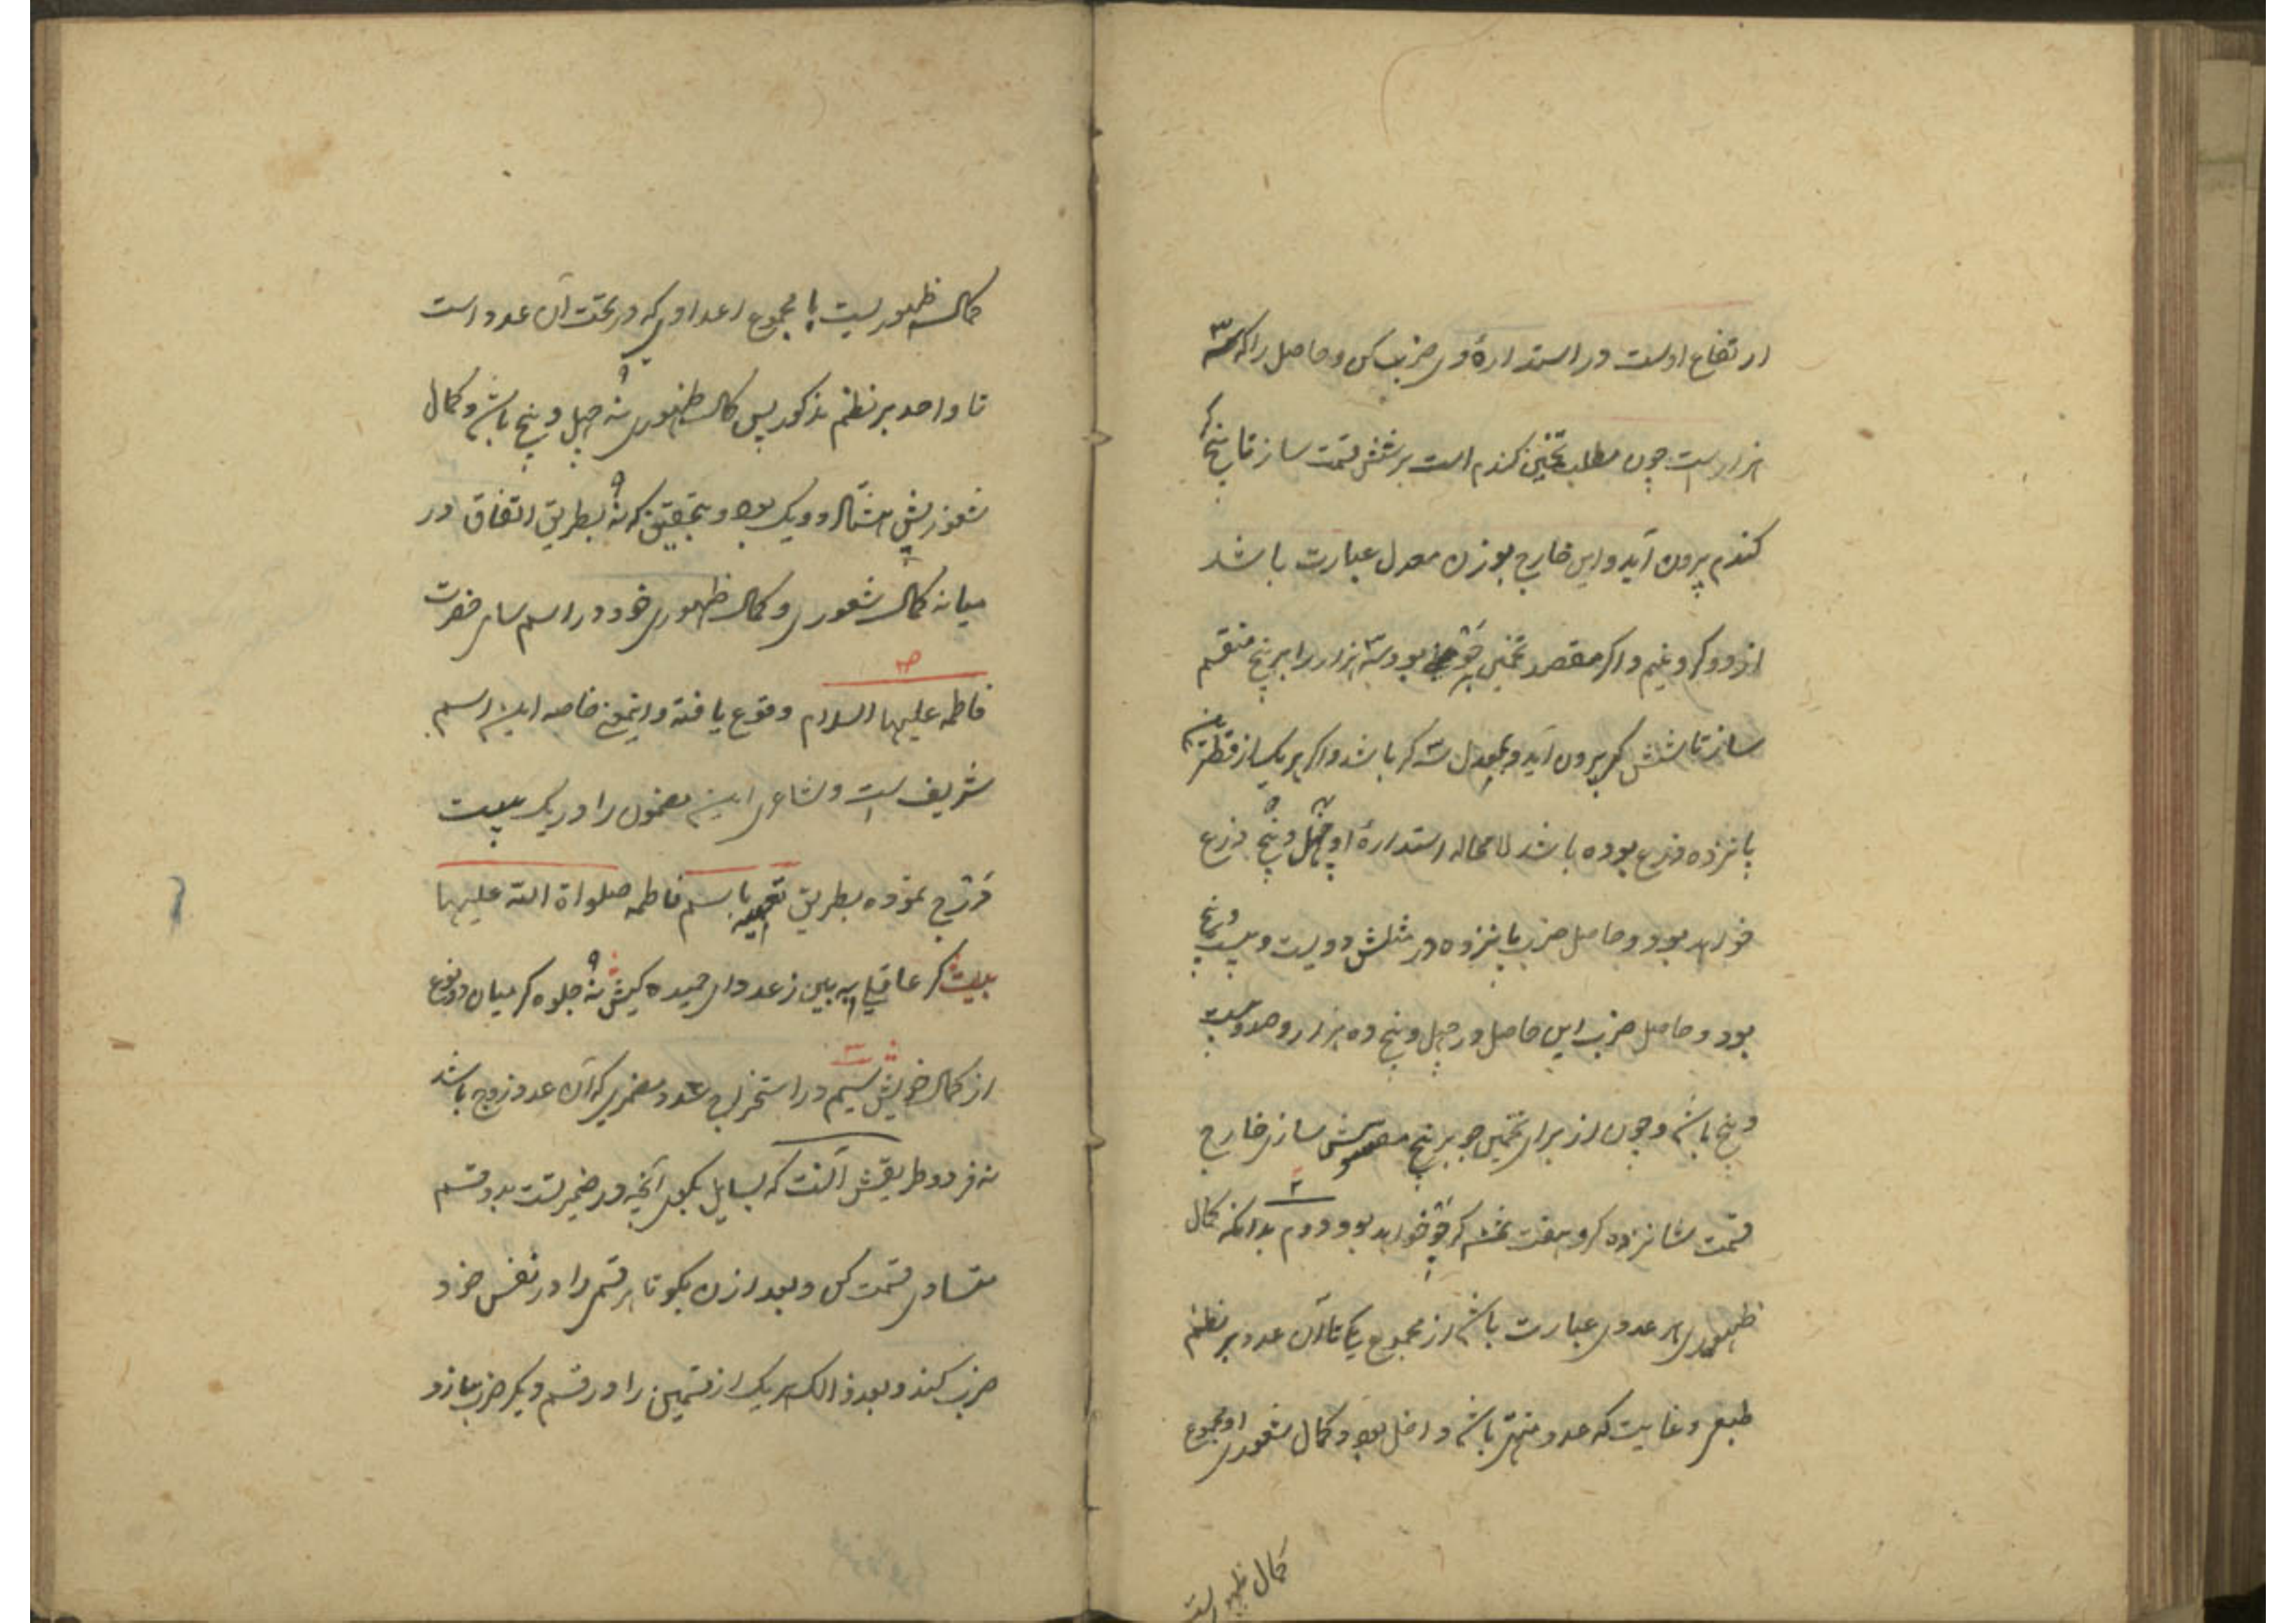 ارتفاع اوست در استدارهٔ وی ضرب کن و حاصل را که سه
هزار است چون مطلب تخمین کندم است بر شش قسمت ساز تا پنج کر
کندم بیرون آید و این خارج بوزن معدل عبارت باشد
از دو کر و نیم و اکر مقصد تخمین جو بود سه هزار را بر پنج منقسم
ساز تا شش کر بیرون آید و بمعدل سه کر باشد و اکر بر یک ساز قطرین
پانزده ذرع بوده باشد لا محاله استدارهٔ او چهل و پنج ذرع
خواهد بود و حاصل ضرب پانزده در مثلش دویست و بیست و پنج
بود و حاصل ضرب این حاصل در چهل و پنج ده هزار و صد و بیست
و پنج باشد و چون از برای تخمین جو بر پنج سازی خارج
قسمت شانزده کر و هفت عشر کر جو خواهد بود دوم بدانکه کمال
ظهوری هر عددی عبارت باشد از مجموع یک تا آن عدد بر نظم
طبیعی و غایت که عدد منتهی باشد داخل بود و کمال شعوری او مجموع
کمال ظهوریست
کمال ظهوریست با مجموع اعدادی که در تحت آن عدد است
تا واحد بر نظم مذکور پس کمال ظهوری نه چهل و پنج باشد و کمال
شعوریش هشتاد و یک بود و بتحقیق که نه بطریق اتفاق در
میانه کمال شعوری و کمال ظهوری خود در اسم سامی حضرت
فاطمه علیها السلام وقوع یافته و اینمعنی خاصه این اسم
شریف است و شاعری این مضمون را در یک بیت
درج نموده بطریق تعمیه باسم فاطمه صلواة الله علیها
بیت کر عاقلی به بین ز عددای حمیده کیش نه جلوه کر میان دو نوع
از کمال خویش سیم در استخراج عدد مضمری که آن عدد زوج باشد
نه فرد و طریقش آنست که بسایل بکوی آنچه در ضمیر تست بدو قسم
متساوی قسمت کن و بعد ازان بکو تا هر قسمی را در نفس خود
ضرب کند و بعد ذالک هر یک از قسمین را در قسم دیکر ضرب سازد